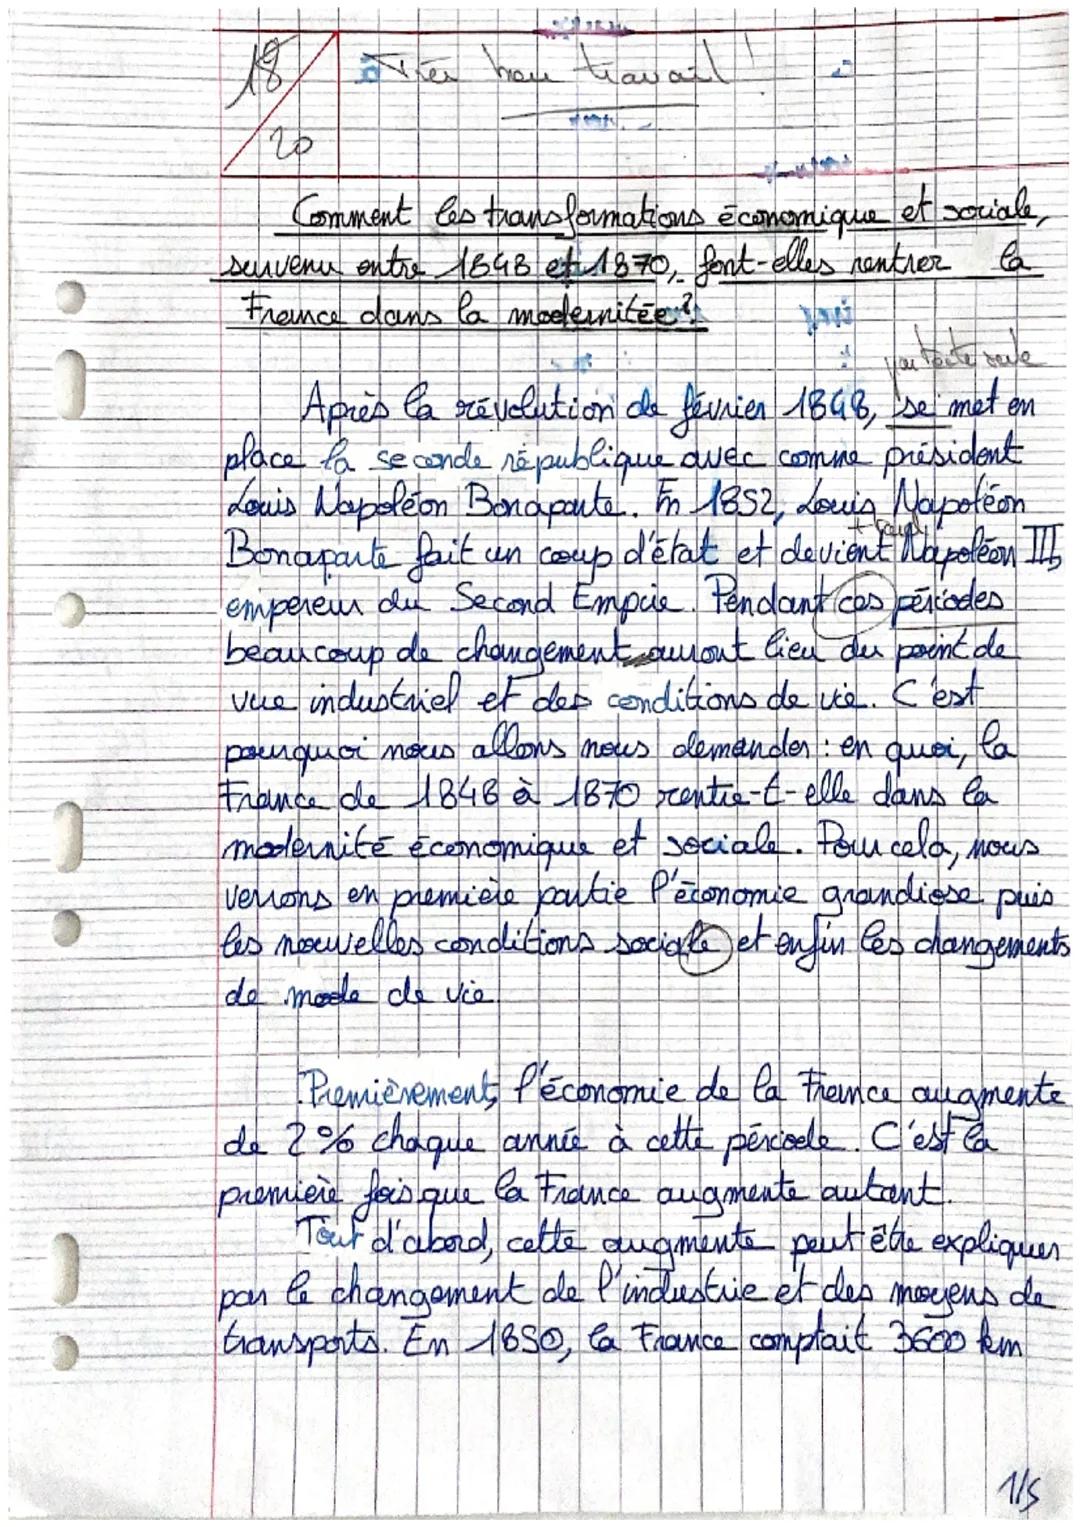 18
20
Très bon travail !
Comment les transformations économique et sociale,
survenu entre 1848 et 1870, font-elles rentrer la
France dans la modernitée ?
pas toute seule
Après la révolution de février 1848, se met en
place la seconde république avec comme président
Louis Napoléon Bonaparte. En 1852, Louis Napoléon
Bonaparte fait un coup d'état et devient Napoléon III,
empereur du Second Empire. Pendant ces périodes
beaucoup de changement auront lieu du point de
vue industriel et des conditions de vie. C'est
pourquoi nous allons nous demander : en quoi, la
France de 1848 à 1870 rentre-t-elle dans la
modernité économique et sociale. Pour cela, nous
verrons en première partie l'économie grandiose puis
les nouvelles conditions sociale et enfin les changements
de mode de vie
Premièrement, l'économie de la France augmente
de 2% chaque année à cette période. C'est la
première fois que la France augmente autant.
Tout d'abord, cette augmente peut être expliquer
par le changement de l'industrie et des moyens de
transports. En 1850, la France comptait 3600 km
1/5